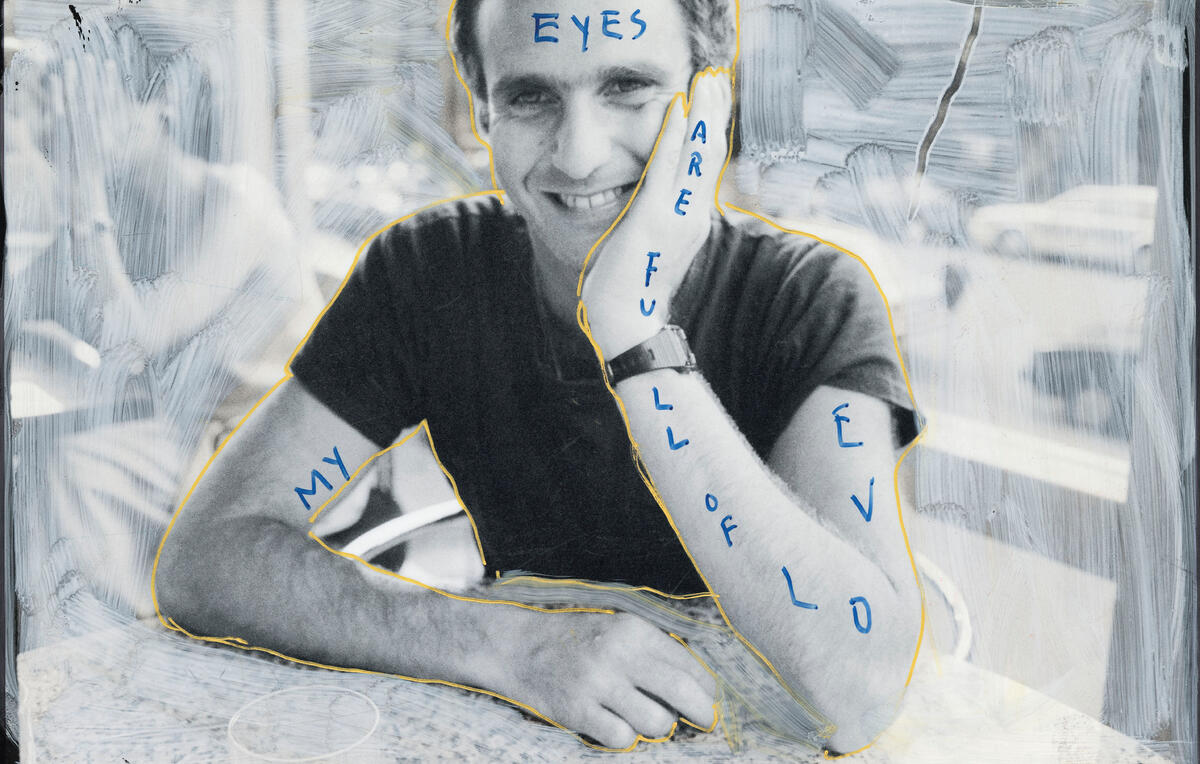 MY
EYES
ARE
FULL
OF
LOVE